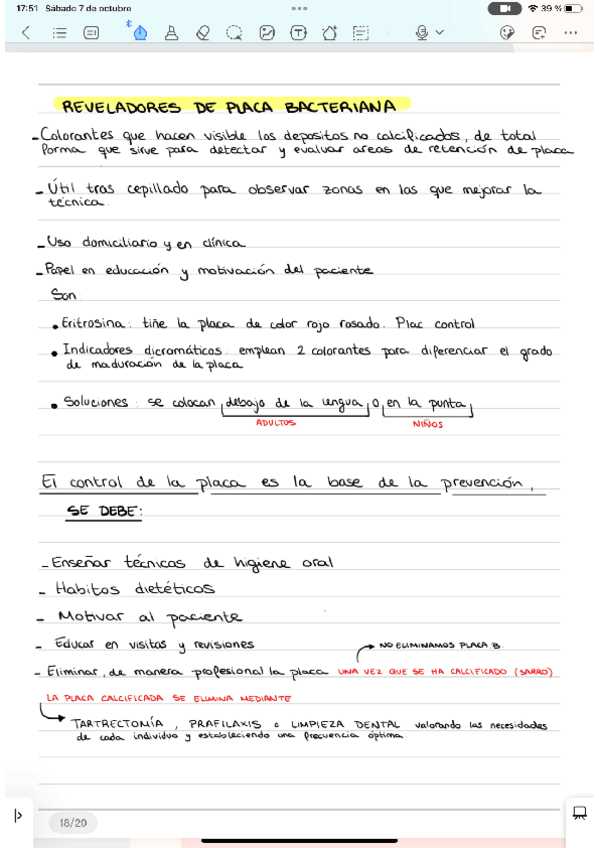 17:51 Sábado 7 de octubre
39 %
REVELADORES DE PLACA BACTERIANA
- Colorantes que hacen visible los depositos no calcificados, de total
forma que sirve para detectar y evaluar areas de retención de placa
- Útil tras cepillado para observar zonas en las que mejorar la
técnica.
- Uso domiciliario y en clínica
- Papel en educación y motivación del paciente
Son
• Eritrosina: tiñe la placa de color rojo rosado. Plac control
• Indicadores dicromáticos: emplean 2 colorantes para diferenciar el grado
de maduración de la placa
• Soluciones: se colocan debajo de la lengua o en la punta
ADULTOS NIÑOS
El control de la placa es la base de la prevención,
SE DEBE:
- Enseñar técnicas de higiene oral
- Habitos dietéticos
- Motivar al paciente
- Educar en visitas y revisiones
NO ELIMINAMOS PLACA B.
- Eliminar, de manera profesional la placa UNA VEZ QUE SE HA CALCIFICADO (SARRO)
LA PLACA CALCIFICADA SE ELIMINA MEDIANTE
TARTRECTOMÍA, PRAFILAXIS o LIMPIEZA DENTAL valorando las necesidades
de cada individuo y estableciendo una frecuencia óptima
18/20